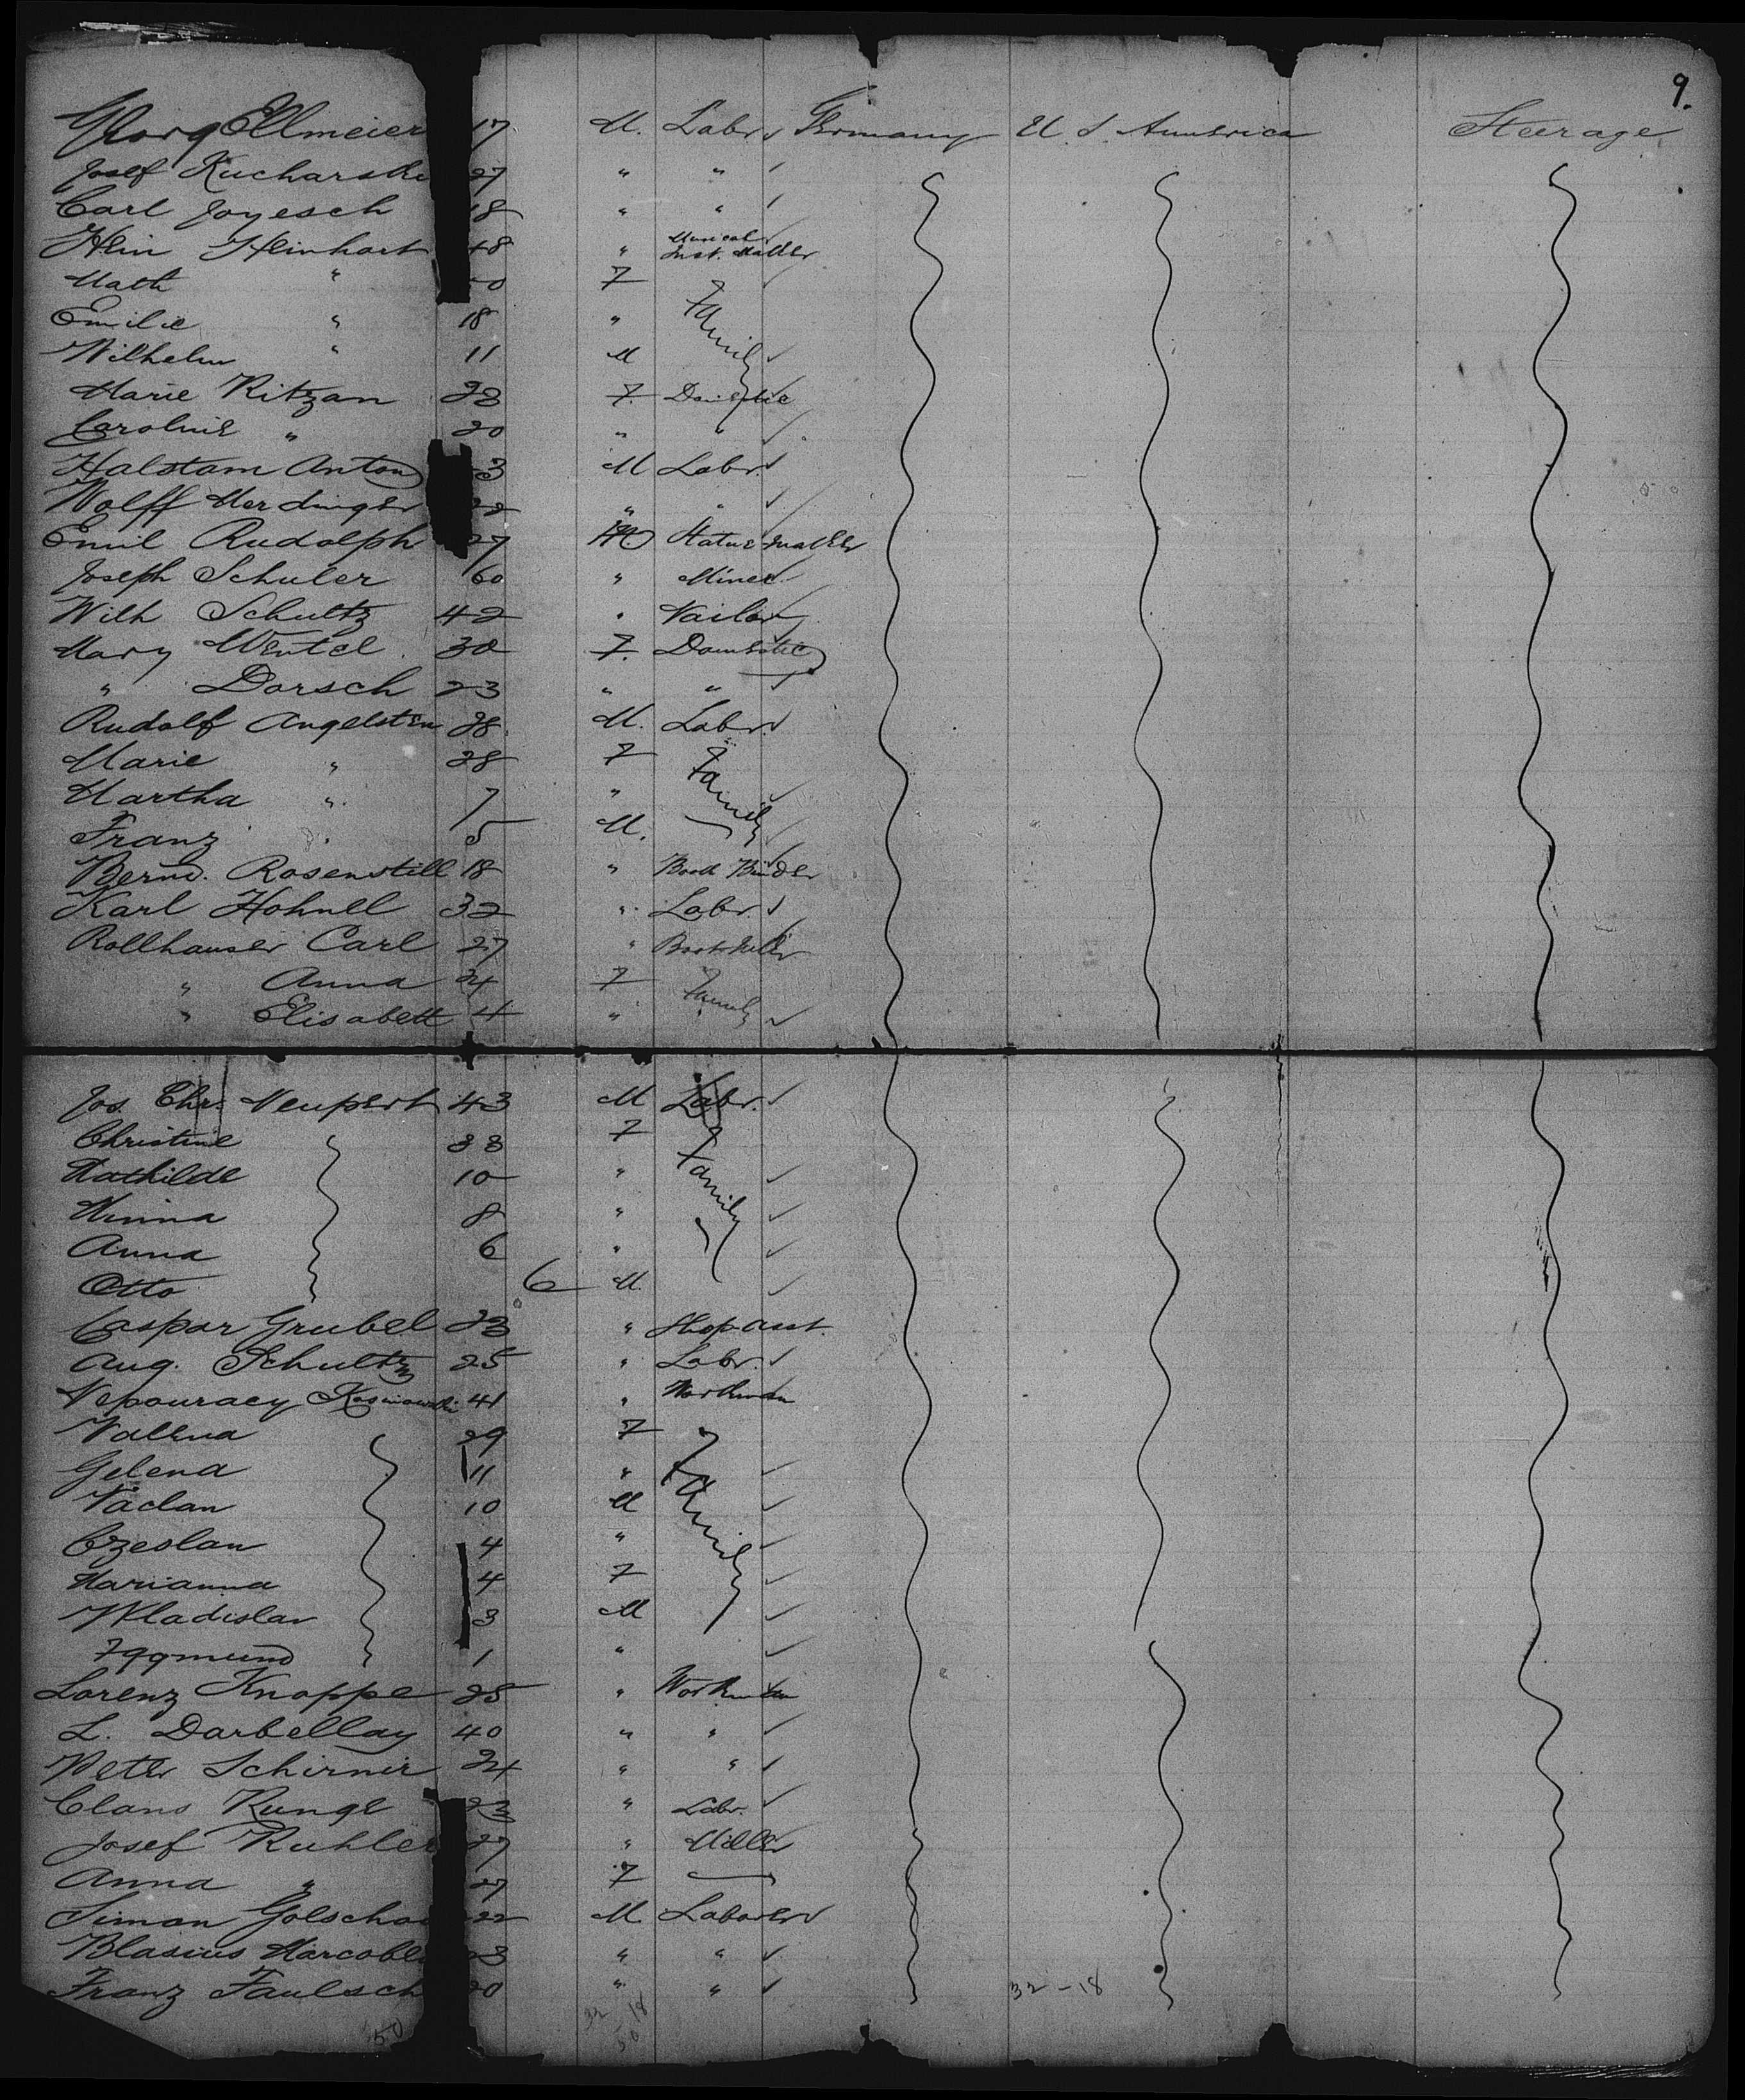 9.
Georg Ellmeier 17 M. Labr. Germany U. S. America Steerage
Josef Kucharski 27 " "
Carl Joyesch 18 " "
Hein Heinhart 48 " Musical Inst. Maker
Math " 7
Emilie " 18 " Family
Wilhelm " 11 M
Marie Ritzan 28 F. Domestic
Caroline " 20 " "
Halstam Anton 3 M Labr.
Wolff Herdinger 22 " "
Emil Rudolph 27 M Statue maker
Joseph Schuler 60 " Miner
Wilh Schultz 42 " Tailor
Mary Wentel 30 F. Domestic
" Dorsch 23 " "
Rudolf Angelstein 28 M. Labr.
Marie " 28 F Family
Martha " 7 "
Franz " 5 M.
Bernd. Rosenstill 18 " Book Binder
Karl Hohnel 32 " Labr.
Rollhauser Carl 27 "
" Anna 24 F Family
" Elisabett 4 "
Jos. Chr. Neupert 43 M Labr.
Christine 38 F Family
Mathilde 10 "
Minna 8 "
Anna 6 "
Otto 6 M.
Caspar Grubel 23 " Shop asst.
Aug. Schultz 25 " Labr.
Nepouracy 41 " Workman
Valena 29 F Family
Gelena 11 "
Vaclan 10 M
Czeslan 4 "
Marianna 4 F
Wladislav 3 M
Zygmund 1 "
Lorenz Knappe 25 " Workman
L. Darbellay 40 " "
Peter Schirnir 24 " "
Clans Runge 23 " Labr.
Josef Ruhler 27 " Miller
Anna " 27 F —
Simon Golscha 22 M. Laborer
Blasius Marcobe 23 " "
Franz Faulsch 20 " "
32 - 18
50 32 18 50